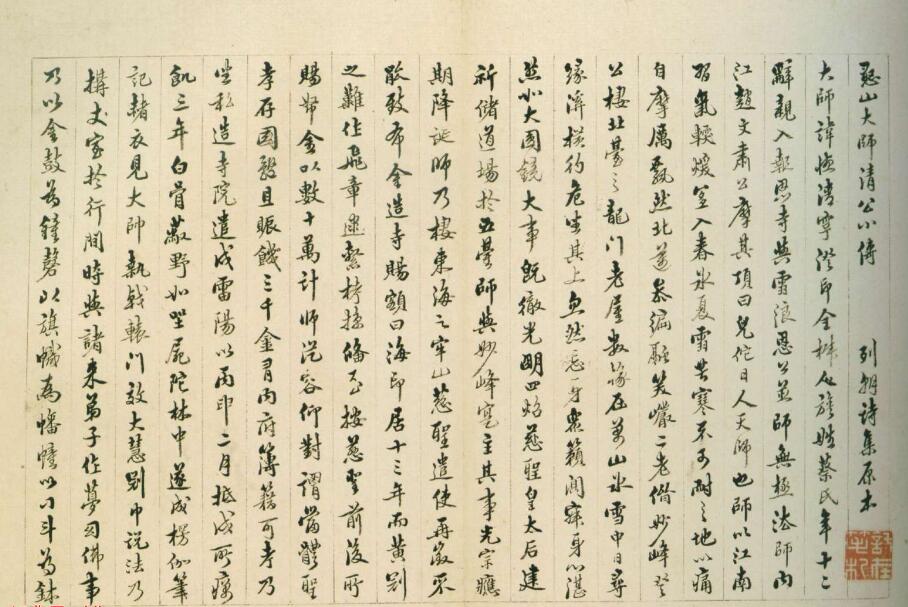 憨山大師清公小傳 列朝詩集原本
大師諱德清字澄印全椒人族姓蔡氏年十二
辭親入報恩寺與雪浪恩公並師無極法師內
江趙文肅公摩其頂曰兒佗日人天師也師以江南
習氣輕煖宜入春氷夏雪苦寒不可耐之地以痛
自摩厲飄然北邁參徧融笑巖二老偕妙峰登
公棲北臺之龍門老屋數椽在萬山氷雪中日尋
緣澗橫彴危坐其上兀然忘身衆籟闃寂身心湛
然如大圓鏡大事旣徹光明四焰慈聖皇太后建
祈儲道場於五臺師與妙峰寔主其事光宗應
期降誕師乃棲東海之牢山慈聖遣使再徵不
能致布金造寺賜額曰海印居十三年而黃冠
之難作飛章逮繫榜掠備至按慈聖前後所
賜帑金以數十萬計師從容仰對謂當體聖
孝存國體且賑饑三千金有內府簿籍可考乃
坐私造寺院遣戍雷陽以丙申二月抵戍所癘
飢三年白骨蔽野如坐屍陀林中遂成楞伽筆
記赭衣見大帥執戟轅門效大慧冠巾說法乃
構丈室於行間時與諸來弟子作夢幻佛事
乃以金鼓爲鐘磬以旗幟爲幡幢以刁斗爲鉢